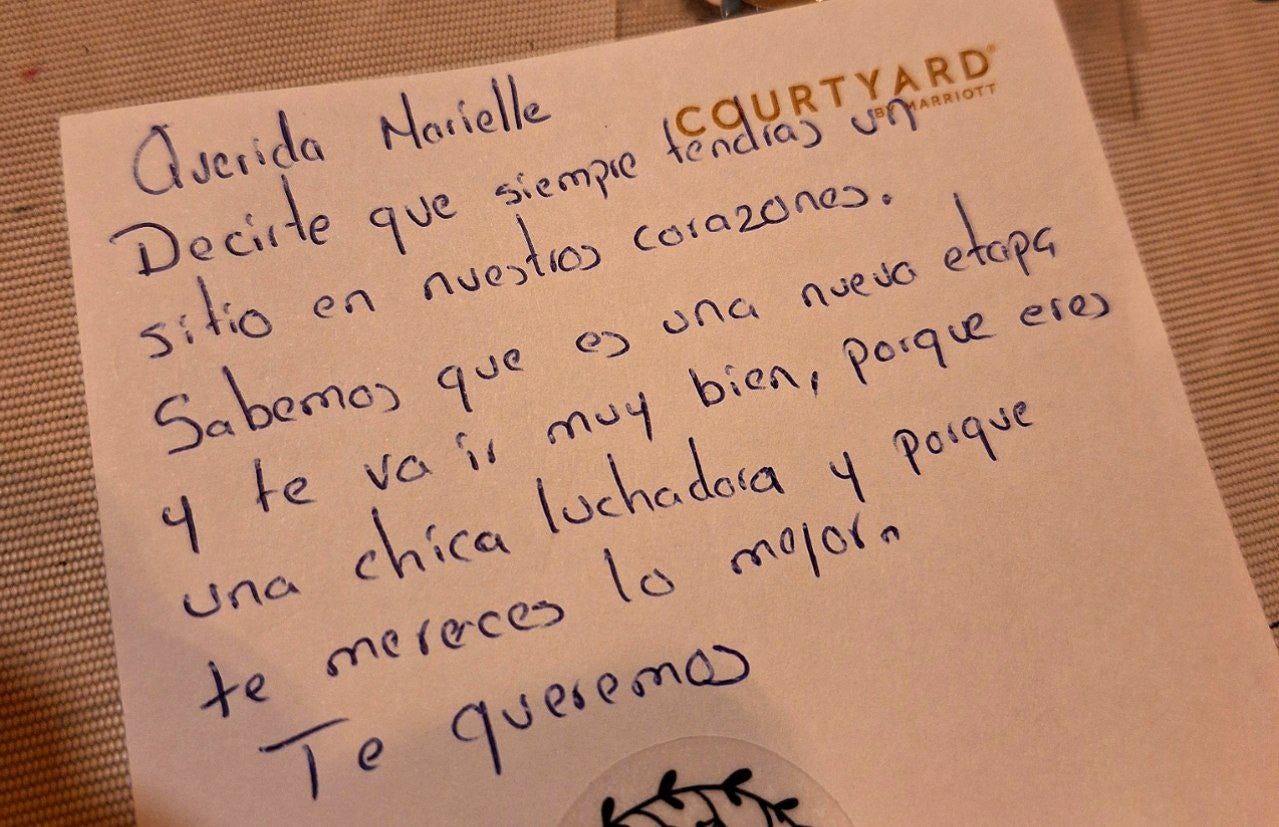 COURTYARD®
BY MARRIOTT
Querida Marielle
Decirte que siempre tendras un
sitio en nuestros corazones.
Sabemos que es una nueva etapa
y te va ir muy bien, porque eres
una chica luchadora y porque
te mereces lo mejor.
Te queremos